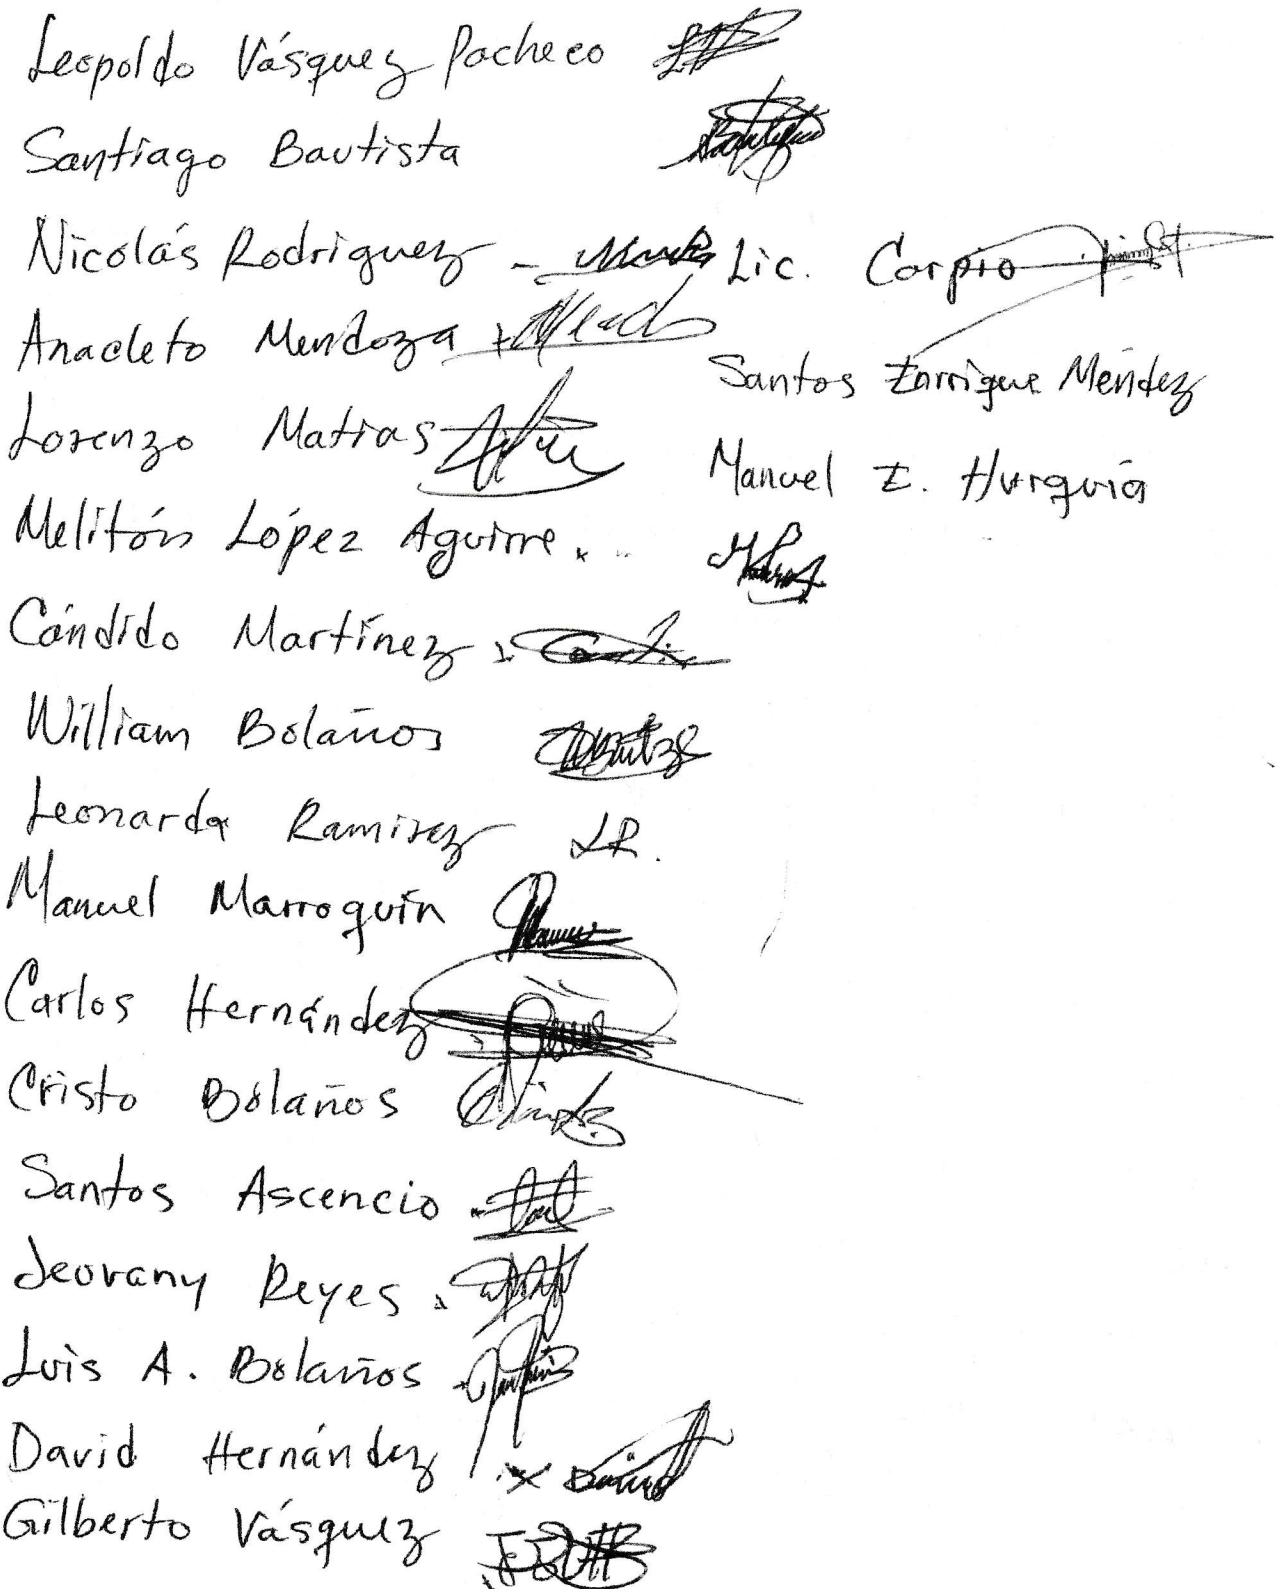 Leopoldo Vásquez Pacheco
Santiago Bautista
Nicolás Rodriguez
Anacleto Mendoza
Lorenzo Matias
Melitón López Aguirre
Cándido Martínez
William Bolaños
Leonarda Ramirez LR.
Manuel Marroquín
Carlos Hernández
Cristo Bolaños
Santos Ascencio
Jeovany Reyes
Luis A. Bolaños
David Hernández
Gilberto Vásquez
Lic. Carpio
Santos Enrrique Méndez
Manuel E. Hurquía